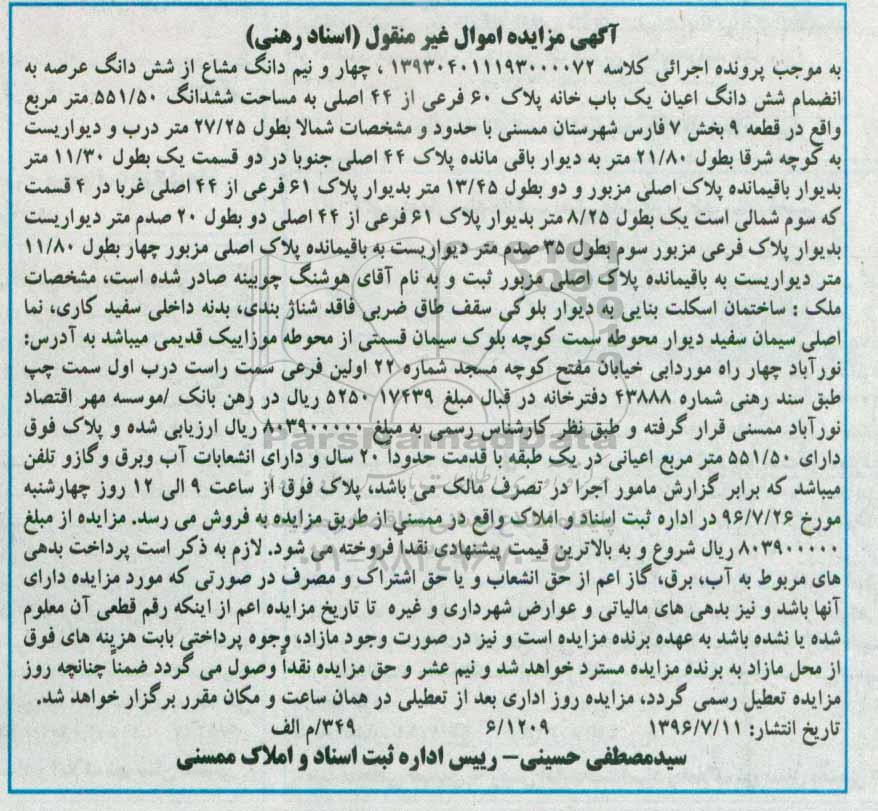 آگهی مزایده اموال غیر منقول (اسناد رهنی)
به موجب پرونده اجرائی کلاسه ۱۳۹۳۰۴۰۱۱۱۹۳۰۰۰۰۷۲ ، چهار و نیم دانگ مشاع از شش دانگ عرصه به
انضمام شش دانگ اعیان یک باب خانه پلاک ۶۰ فرعی از ۴۴ اصلی به مساحت ششدانگ ۵۵۱/۵۰ متر مربع
واقع در قطعه ۹ بخش ۷ فارس شهرستان ممسنی با حدود و مشخصات شمالا بطول ۲۷/۲۵ متر درب و دیواریست
به کوچه شرقا بطول ۲۱/۸۰ متر به دیوار باقی مانده پلاک ۴۴ اصلی جنوبا در دو قسمت یک بطول ۱۱/۳۰ متر
بدیوار باقیمانده پلاک اصلی مزبور و دو بطول ۱۳/۴۵ متر بدیوار پلاک ۶۱ فرعی از ۴۴ اصلی غربا در ۴ قسمت
که سوم شمالی است یک بطول ۸/۲۵ متر بدیوار پلاک ۶۱ فرعی از ۴۴ اصلی دو بطول ۲۰ صدم متر دیواریست
بدیوار پلاک فرعی مزبور سوم بطول ۳۵ صدم متر دیواریست به باقیمانده پلاک اصلی مزبور چهار بطول ۱۱/۸۰
متر دیواریست به باقیمانده پلاک اصلی مزبور ثبت و به نام آقای هوشنگ چوبینه صادر شده است، مشخصات
ملک : ساختمان اسکلت بنایی به دیوار بلوکی سقف طاق ضربی فاقد شناژ بندی، بدنه داخلی سفید کاری، نما
اصلی سیمان سفید دیوار محوطه سمت کوچه بلوک سیمان قسمتی از محوطه موزاییک قدیمی میباشد به آدرس:
نورآباد چهار راه موردابی خیابان مفتح کوچه مسجد شماره ۲۲ اولین فرعی سمت راست درب اول سمت چپ
طبق سند رهنی شماره ۴۳۸۸۸ دفترخانه در قبال مبلغ ۵۲۵۰۱۷۴۳۹ ریال در رهن بانک /موسسه مهر اقتصاد
نورآباد ممسنی قرار گرفته و طبق نظر کارشناس رسمی به مبلغ ۸۰۳۹۰۰۰۰۰ ریال ارزیابی شده و پلاک فوق
دارای ۵۵۱/۵۰ متر مربع اعیانی در یک طبقه با قدمت حدودا ۲۰ سال و دارای انشعابات آب وبرق وگازو تلفن
میباشد که برابر گزارش مامور اجرا در تصرف مالک می باشد، پلاک فوق از ساعت ۹ الی ۱۲ روز چهارشنبه
مورخ ۹۶/۷/۲۶ در اداره ثبت اسناد و املاک واقع در ممسنی ازطریق مزایده به فروش می رسد. مزایده از مبلغ
۸۰۳۹۰۰۰۰۰ ریال شروع و به بالاترین قیمت پیشنهادی نقداً فروخته می شود. لازم به ذکر است پرداخت بدهی
های مربوط به آب، برق، گاز اعم از حق انشعاب و یا حق اشتراک و مصرف در صورتی که مورد مزایده دارای
آنها باشد و نیز بدهی های مالیاتی و عوارض شهرداری و غیره تا تاریخ مزایده اعم از اینکه رقم قطعی آن معلوم
شده با نشده باشد به عهده برنده مزایده است و نیز در صورت وجود مازاد، وجوه پرداختی بابت هزینه های فوق
از محل مازاد به برنده مزایده مسترد خواهد شد و نیم عشر و حق مزایده نقداً وصول می گردد ضمناً چنانچه روز
مزایده تعطیل رسمی گردد، مزایده روز اداری بعد از تعطیلی در همان ساعت و مکان مقرر برگزار خواهد شد.
تاریخ انتشار: ۱۳۹۶/۷/۱۱ ۶/۱۲۰۹ ۳۴۹/م الف
سیدمصطفی حسینی- رییس اداره ثبت اسناد و املاک ممسنی
ParsNamadData